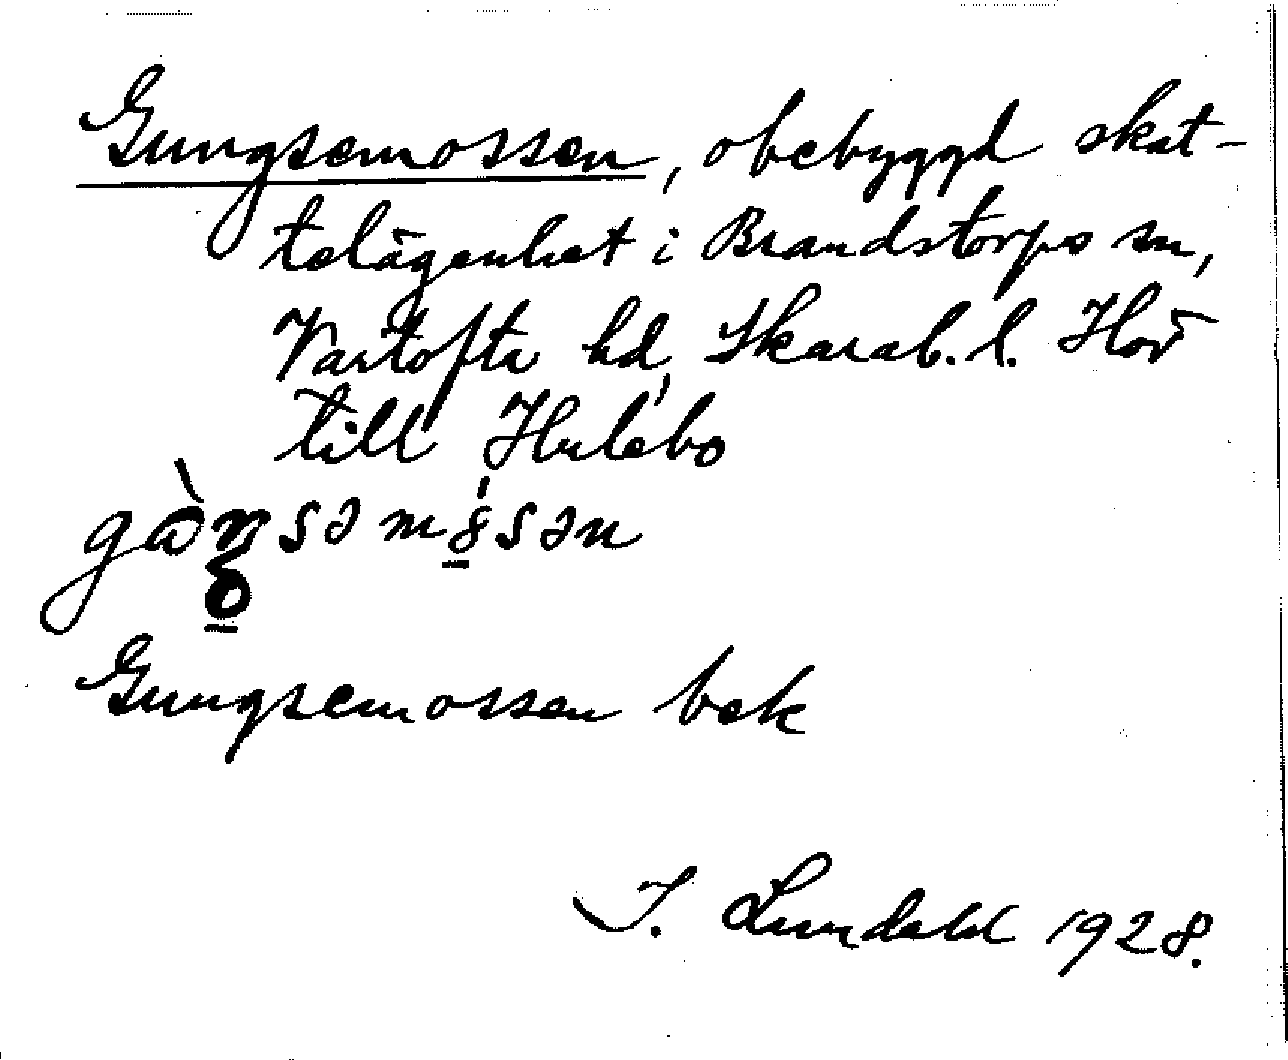 Gungsemossen, obebyggd skat-
telägenhet i Brandstorps sn,
Vartofta hd, Skarab. l. Hör
till Hulebo
Gungsemossen bek
I. Lundahl 1928.